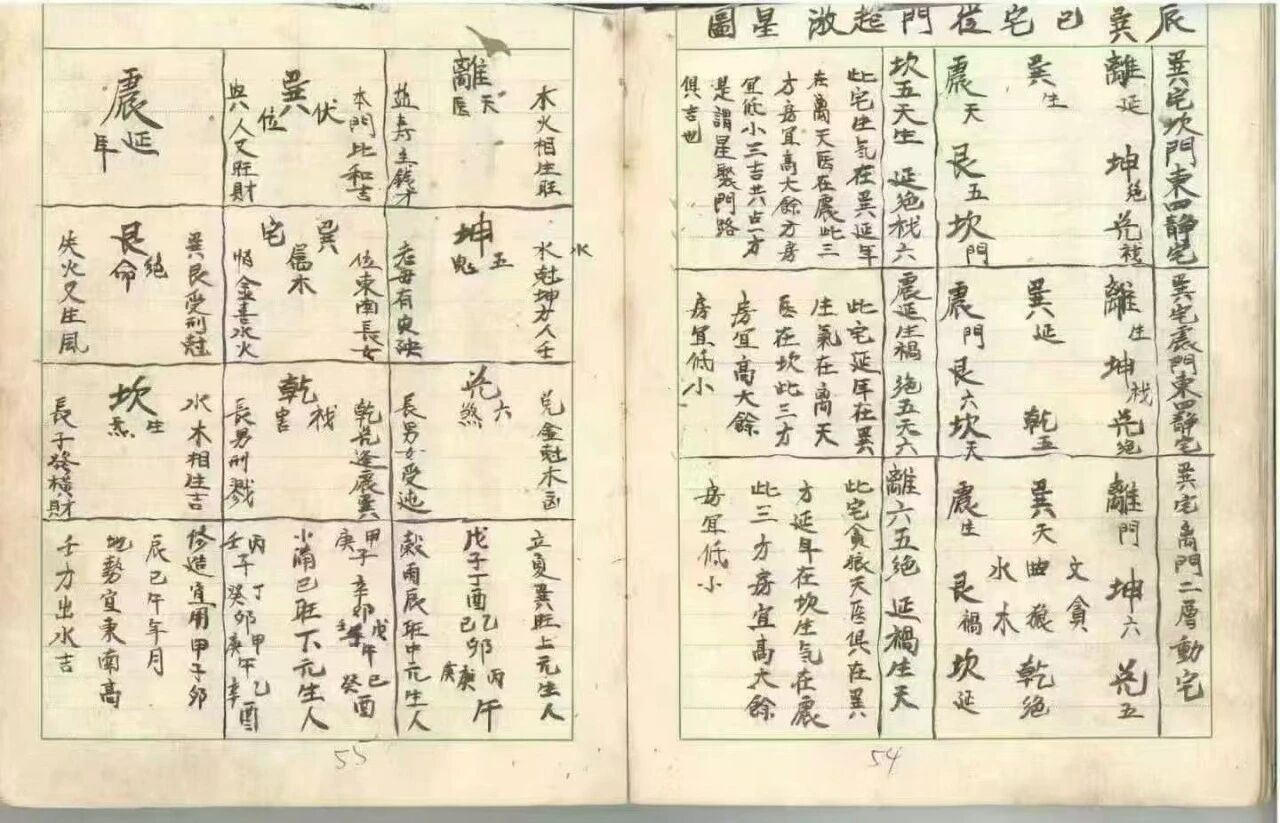 辰巽巳宅從門起游星圖
巽宅坎門東四靜宅
離延
坤絕
兑禍
巽生
震天
艮五
坎門
坎五天生 延絕禍六
此宅生气在巽延年
在离天医在震此三
方房宜高大餘方房
宜低小三吉共占一方
是謂星聚門路
俱吉也
巽宅震門東四靜宅
離生
坤禍
兑絕
巽延
乾五
震門
艮六
坎天
震延生禍 絕五天六
此宅延年在巽
生氣在离天
医在坎此三方
房宜高大餘
房宜低小
巽宅离門二層動宅
離門
坤六
兑五
文貪
巽天
曲狼
乾絕
水木
震生
艮禍
坎延
離六五絕 延禍生天
此宅貪狼天医俱在巽
方延年在坎生气在震
此三方房宜高大餘
房宜低小
54
木火相生旺
離
天医
益寿主錢才
本門比和吉
巽
伏位
與人又旺財
震
延年
水
水尅坤方人壬
坤
五鬼
老母有灾殃
巽宅
属木
位東南長女
惱金喜水火
巽艮受刑尅
艮
絕命
失火又生風
兑金尅木凶
兑
六煞
長男女受迍
乾兑逢震巽
乾
禍害
長男刑戮
水木相生吉
坎
生炁
長子發橫財
立夏巽旺上元生人
戊子丁酉乙卯丙午
己庚庚
穀雨辰旺中元生人
甲子辛卯戊午己酉
庚癸
小滿巳旺下元生人
丙丁甲乙
壬子癸卯庚午辛酉
修造宜用甲子卯
辰巳午年月
地勢宜東南高
壬方出水吉
55